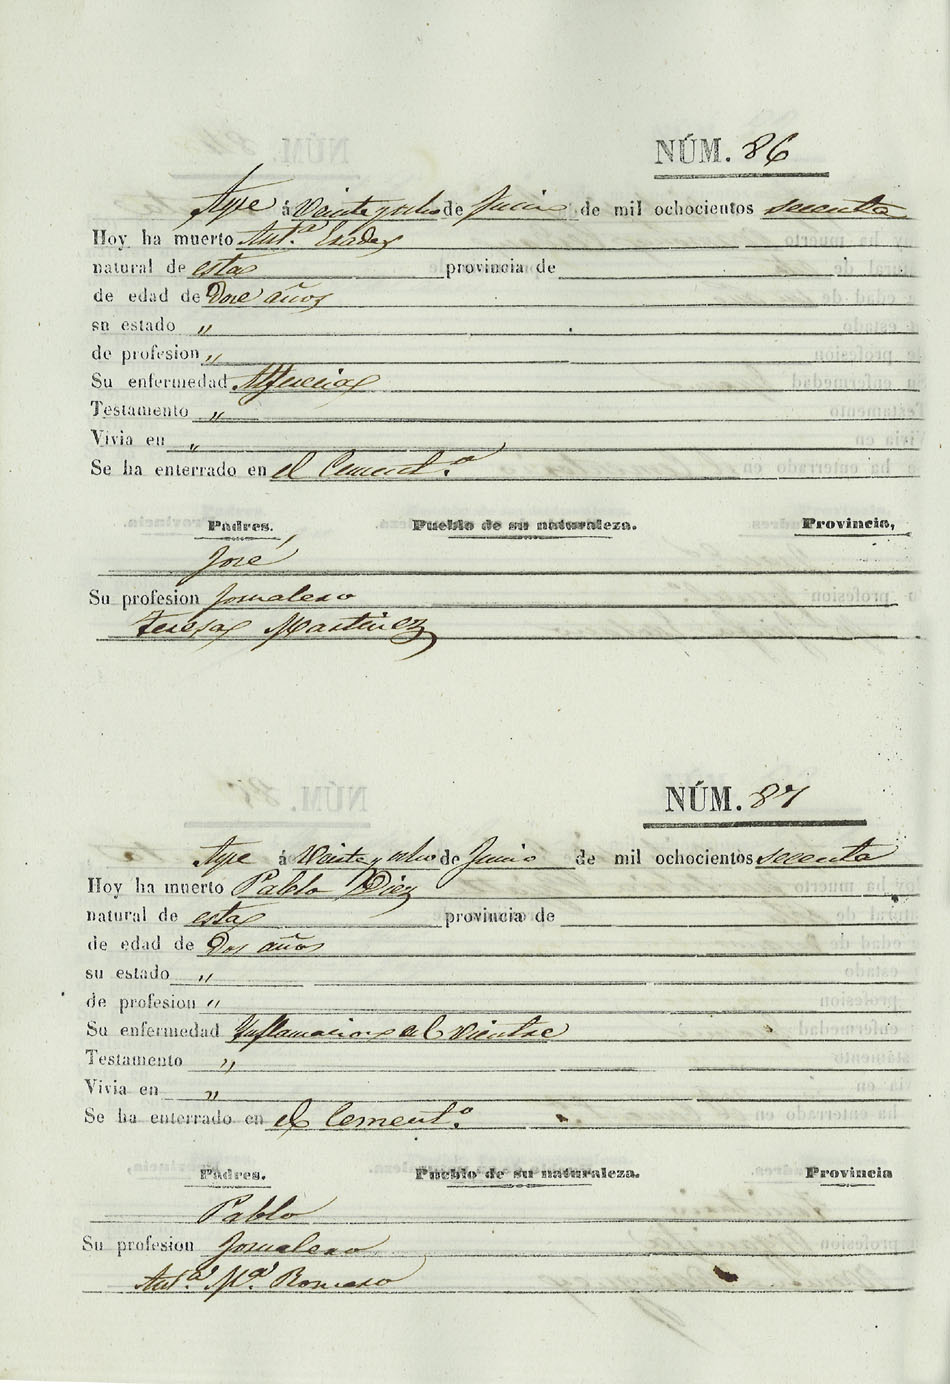 NÚM. 86
Aspe á Veinte y ocho de Junio de mil ochocientos secenta
Hoy ha muerto Antº
natural de esta provincia de
de edad de Doce años
sn estado "
de profesion "
Su enfermedad Alferecia
Testamento "
Vivia en "
Se ha enterrado en el Cementº
Padres. Pueblo de su naturaleza. Provincia,
José
Su profesion Jornalero
Teresa Martinez
NÚM. 87
Aspe á Veinte y ocho de Junio de mil ochocientos secenta
Hoy ha muerto Pablo Diez
natural de esta provincia de
de edad de Dos años
su estado "
de profesion "
Su enfermedad Inflamacion al vientre
Testamento "
Vivia en "
Se ha enterrado en el Cementº
Padres. Pueblo de su naturaleza. Provincia
Pablo
Su profesion Jornalero
Antª Mª Romero